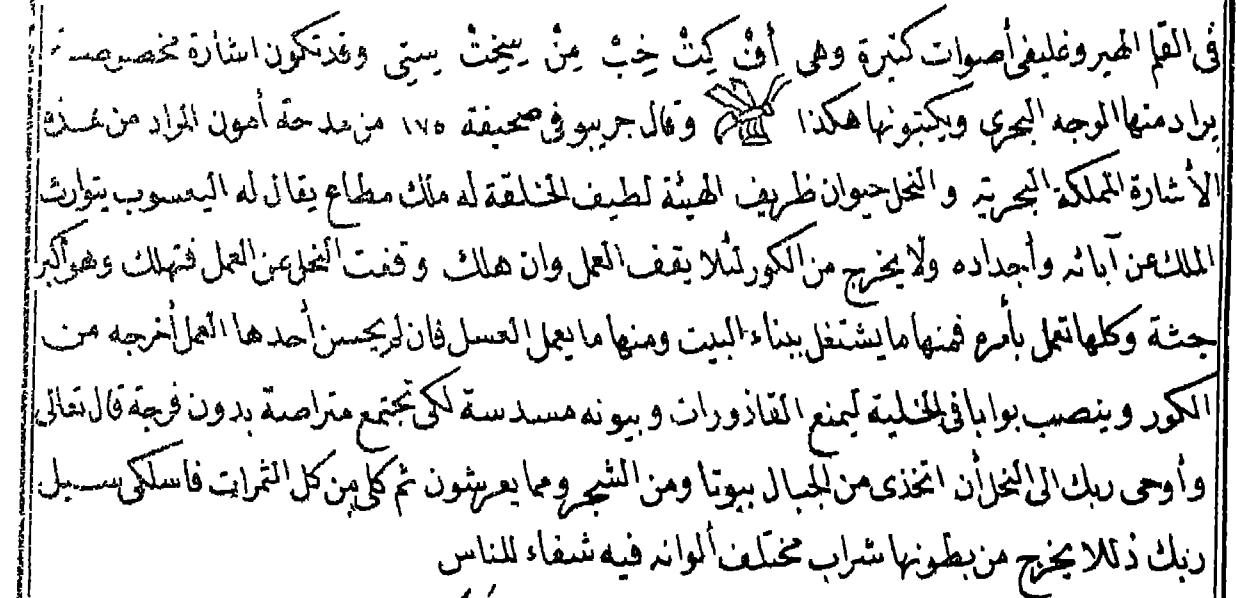 في القلم الهيروغليفي أصوات كثيرة وهي أَفْ كِتْ خِبْ مِنْ سِخِتْ سيتي وقد تكون اشارة مخصوصة
يراد منها الوجه البحري ويكتبونها هكذا وقال جريبو في صحيفة ١٧٥ من مدحة أمون المراد من هذه
الأشارة المملكة البحرية و النحل حيوان ظريف الهيئة لطيف الخلقة له ملك مطاع يقال له اليعسوب يتوارث
الملك عن آبائه وأجداده ولا يخرج من الكور لئلا يقف العمل وان هلك وقفت النحل عن العمل فتهلك وهو أكبر
جثة وكلها تعمل بأمره فمنها ما يشتغل ببناء البيت ومنها ما يعمل العسل فان لم يحسن أحدها العمل أخرجه من
الكور وينصب بوابا في الخلية ليمنع القاذورات وبيوته مسدسة لكي تجتمع متراصة بدون فرجة قال تعالى
وأوحى ربك الى النحل أن اتخذى من الجبال بيوتا ومن الشجر ومما يعرشون ثم كلى من كل الثمرات فاسلكى سبل
ربك ذللا يخرج من بطونها شراب مختلف ألوانه فيه شفاء للناس